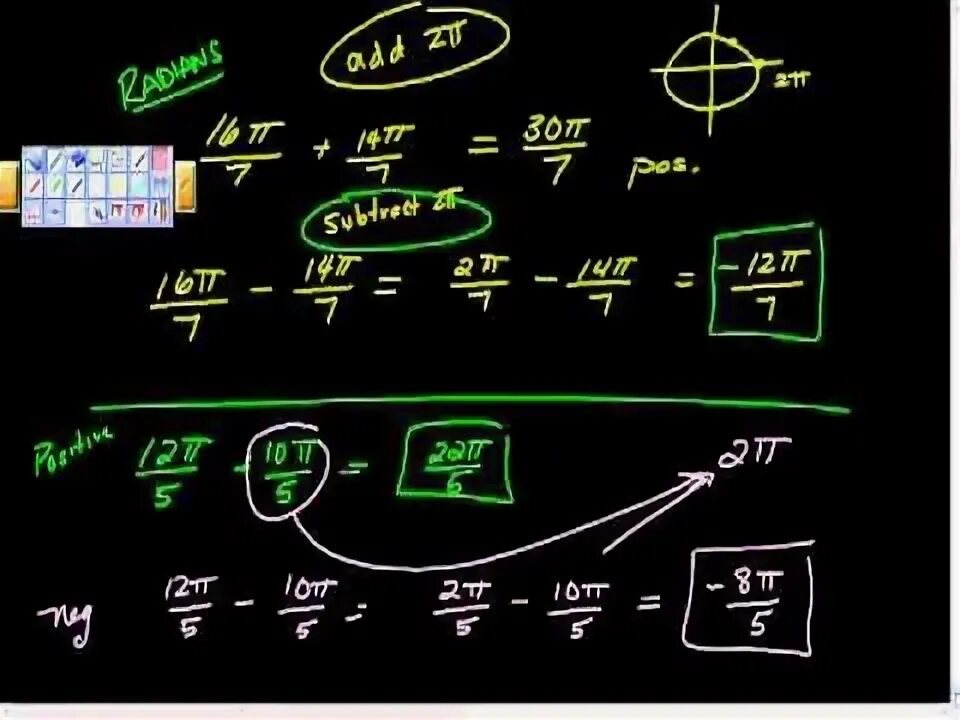 RADIANS
add 2π
2π
16π/7 + 14π/7 = 30π/7 pos.
subtract 2π
16π/7 - 14π/7 = 2π/7 - 14π/7 = -12π/7
Positive 12π/5 - 10π/5 = 22π/5
2π
neg 12π/5 - 10π/5 = 2π/5 - 10π/5 = -8π/5